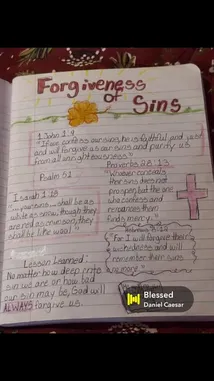 Forgiveness
of
Sins
1 John 1:9
"If we confess our sins, he is faithful and just
and will forgive us our sins and purify us
from all unrighteousness"
Psalm 51
Proverbs 28:13
"Whoever conceals
their sins does not
prosper, but the one
who confesses and
renounces them
finds mercy."
Isaiah 1:18
shall be as
white as snow; though they
are red as crimson, they
shall be like wool"
"For I will forgive their
wickedness and will
remember their sins
no more"
Lesson Learned:
No matter how deep into
sin we are or how bad
our sin may be, God will
ALWAYS forgive us.
Blessed
Daniel Caesar